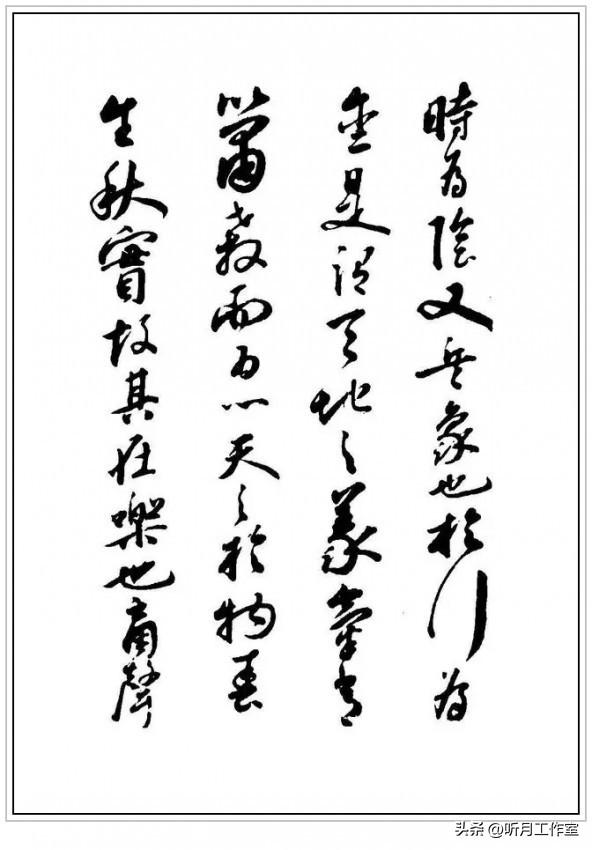 時為陰又兵象也於行為
金是謂天地之義常
以肅殺而為心天之於物春
生秋實故其在樂也商聲
头条 @听月工作室